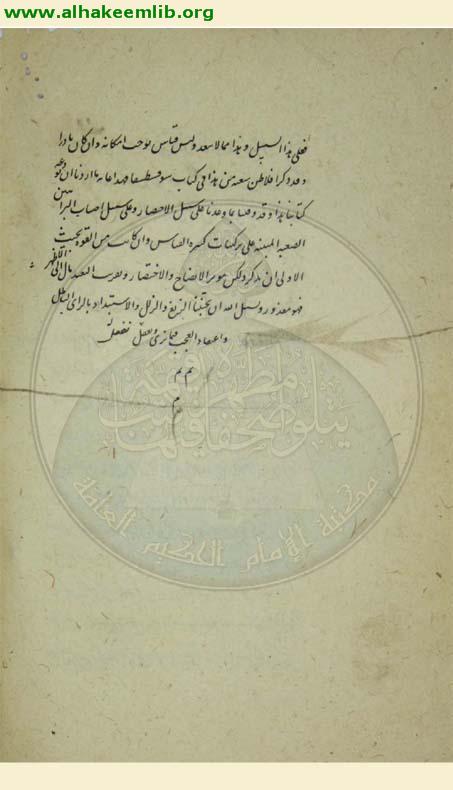 www.alhakeemlib.org
فعلى هذا السبيل وهذا مما لا سعد وليس قياس يوجب امكانه وان كان نادرا
وقد ذكر افلاطن سعة من هذا فى كتاب سوفسطيقا فهذا غاية ما اردنا ان
كتابنا هذا وقد وفينا بما وعدنا على سبيل الاختصار وعلى سبيل اصحاب البراهين
الصعبة المبنية على تركيبات كثيرة القياس وان كانت من القوة بحيث
الاولى ان يذكر ولكن موثر الايضاح والاختصار وتقريب البعيد الى
فهو معذور ونسئل الله ان يجنبنا الزيغ والزلل والاستبداد بالراى الباطل
واعتقاد العجب فيما نرى ونفعل
تم
م
يتلو صحفا مطهرة فيها كتب قيمة
مكتبة الإمام الحكيم العامة